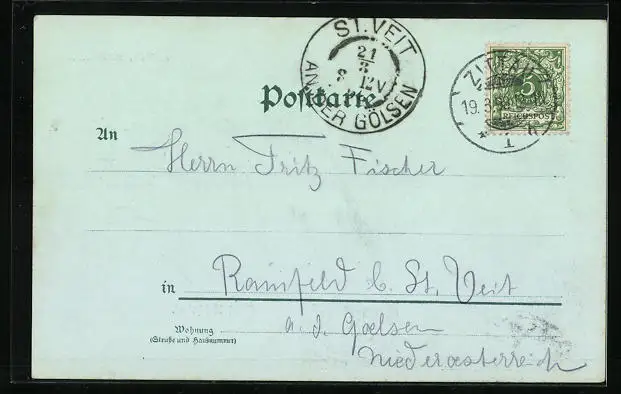 ST. VEIT
21
3
8 12V
AN DER GÖLSEN
Postkarte
ZITTAU
19.3.
5
REICHSPOST
An
Herrn Fritz Fischer
in
Rainfeld b. St. Veit
Wohnung
(Straße und Hausnummer)
a. d. Goelsen
Niederoesterreich